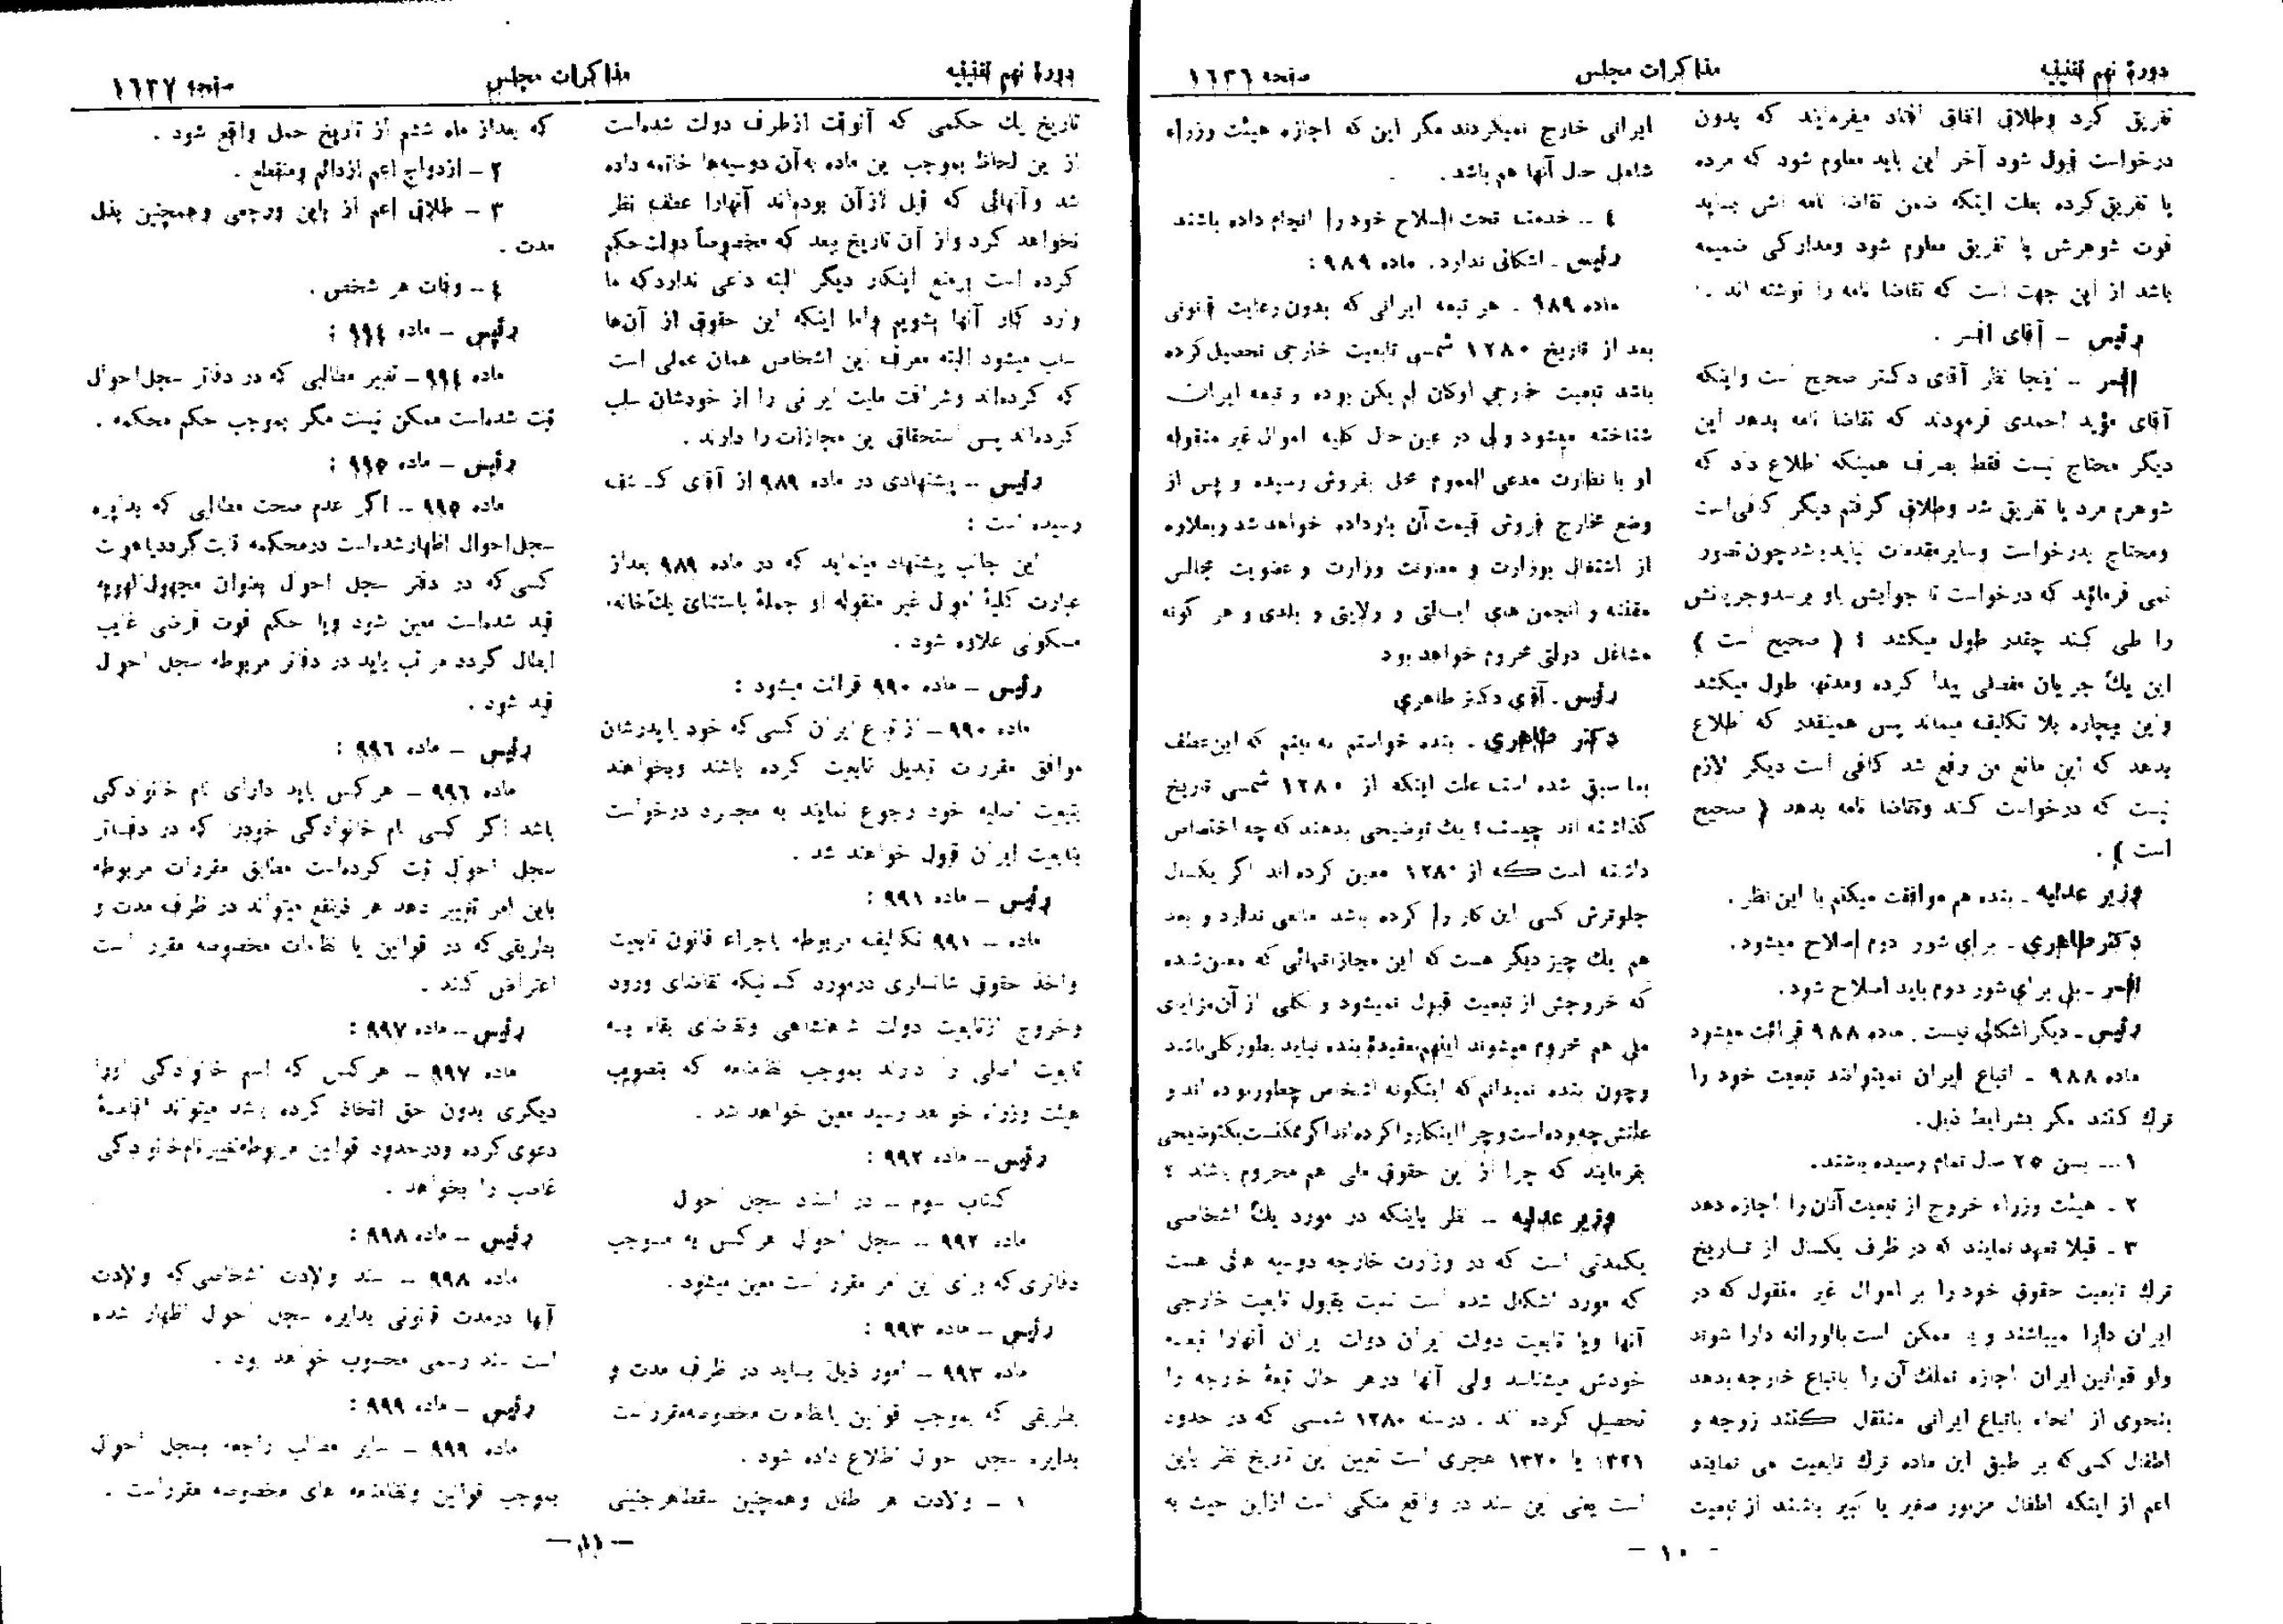 دورهٔ نهم تقنینیه مذاکرات مجلس صفحه ۱۶۳۶
تفریق کرد وطلاقی اتفاق افتاد میفرمایند که بدون
درخواست قبول شود آخر این باید معلوم شود که مرده
یا تفریق کرده بعلت اینکه ضمن تقاضا نامه اش بیاید
فوت شوهرش یا تفریق معلوم شود ومدارکی ضمیمه
باشد از این جهت است که تقاضا نامه را نوشته اند .
رئیس – آقای افسر .
افسر – اینجا نظر آقای دکتر صحیح است واینکه
آقای مؤید احمدی فرمودند که تقاضا نامه بدهد این
دیگر محتاج نیست فقط بصرف همینکه اطلاع داد که
شوهرم مرد یا تفریق شد وطلاق گرفتم دیگر کافی است
ومحتاج بدرخواست وسایر مقدمات نباید باشد چون تصور
نمی فرمائید که درخواست تا جوابش باو برسد وجریانش
را طی کند چقدر طول میکشد ؟ ( صحیح است )
این یک جریان مفصلی پیدا کرده ومدتها طول میکشد
واین بیچاره بلا تکلیف میماند پس همینقدر که اطلاع
بدهد که این مانع من رفع شد کافی است دیگر لازم
نیست که درخواست کند وتقاضا نامه بدهد ( صحیح
است ) .
وزیر عدلیه – بنده هم موافقت میکنم با این نظر .
دکتر طاهری – برای شور دوم اصلاح میشود .
افسر – بلی برای شور دوم باید اصلاح شود .
رئیس – دیگر اشکالی نیست . ماده ۹۸۸ قرائت میشود
ماده ۹۸۸ – اتباع ایران نمیتوانند تبعیت خود را
ترک کنند مگر بشرایط ذیل .
۱ – بسن ۲۵ سال تمام رسیده باشند .
۲ – هیئت وزراء خروج از تبعیت آنان را اجازه دهد
۳ – قبلا تعهد نمایند که در ظرف یکسال از تاریخ
ترک تابعیت حقوق خود را بر اموال غیر منقول که در
ایران دارا میباشند و یا ممکن است بالوراثه دارا شوند
ولو قوانین ایران اجازه تملک آن را باتباع خارجه بدهد
بنحوی از انحاء باتباع ایرانی منتقل کنند زوجه و
اطفال کسی که بر طبق این ماده ترک تابعیت می نمایند
اعم از اینکه اطفال مزبور صغیر یا کبیر باشند از تبعیت
ایرانی خارج نمیگردند مگر این که اجازه هیئت وزراء
شامل حال آنها هم باشد .
٤ – خدمت تحت السلاح خود را انجام داده باشند
رئیس – اشکالی ندارد . ماده ۹۸۹ :
ماده ۹۸۹ – هر تبعه ایرانی که بدون رعایت قانونی
بعد از تاریخ ۱۲۸۰ شمسی تابعیت خارجی تحصیل کرده
باشد تبعیت خارجی اوکان لم یکن بوده و تبعه ایران
شناخته میشود ولی در عین حال کلیه اموال غیر منقوله
او با نظارت مدعی العموم محل بفروش رسیده و پس از
وضع مخارج فروش قیمت آن باو داده خواهد شد وبعلاوه
از اشتغال بوزارت و معاونت وزارت و عضویت مجالس
مقننه و انجمن های ایالتی و ولایتی و بلدی و هر گونه
مشاغل دولتی محروم خواهد بود
رئیس – آقای دکتر طاهری
دکتر طاهری – بنده خواستم به بینم که این عطف
بما سبق شده است علت اینکه از ۱۲۸۰ شمسی تاریخ
گذاشته اند چیست ؟ یک توضیحی بدهند که چه اختصاص
داشته است که از ۱۲۸۰ معین کرده اند اگر یکسال
جلوترش کسی این کار را کرده باشد مانعی ندارد و بعد
هم یک چیز دیگر هست که این مجازاتهائی که معین شده
که خروجش از تبعیت قبول نمیشود و بکلی از آن مزایای
ملی هم محروم میشوند اینهم بعقیدهٔ بنده نباید بطور کلی باشد
وچون بنده نمیدانم که اینگونه اشخاص چطور بوده اند و
علتش چه بوده است وچرا اینکار را کرده اند اگر ممکنست یک توضیحی
بفرمایند که چرا از این حقوق ملی هم محروم باشند ؟
وزیر عدلیه – نظر باینکه در مورد یک اشخاصی
یکمدتی است که در وزارت خارجه دوسیه هائی هست
که مورد اشکال شده است نسبت بقبول تابعیت خارجی
آنها ویا تابعیت دولت ایران دولت ایران آنهارا تبعه
خودش میشناسد ولی آنها درهر حال تبعهٔ خارجه را
تحصیل کرده اند . درسنه ۱۲۸۰ شمسی که در حدود
۱۳۲۱ یا ۱۳۲۰ هجری است تعیین این تاریخ نظر باین
است یعنی این سند در واقع متکی است ازاین حیث به
– ۱۰ –
دورهٔ نهم تقنینیه مذاکرات مجلس صفحه ۱۶۳۷
تاریخ یک حکمی که آنوقت ازطرف دولت شده است
از این لحاظ بموجب این ماده به آن دوسیه ها خاتمه داده
شد وآنهائی که قبل ازآن بوده اند آنهارا عطف نظر
نخواهد کرد واز آن تاریخ ببعد که مخصوصاً دولت حکم
کرده است برضع اینکار دیگر البته داعی ندارد که ما
وارد کار آنها بشویم واما اینکه این حقوق از آن ها
سلب میشود البته معرف این اشخاص همان عملی است
که کرده اند وشرافت ملیت ایرانی را از خودشان سلب
کرده اند پس استحقاق این مجازات را دارند .
رئیس – پیشنهادی در ماده ۹۸۹ از آقای کاشف
رسیده است :
این جانب پیشنهاد مینماید که در ماده ۹۸۹ بعداز
عبارت کلیهٔ اموال غیر منقوله او جملهٔ باستثنای یک خانه
مسکونی علاوه شود .
رئیس – ماده ۹۹۰ قرائت میشود :
ماده ۹۹۰ – از اتباع ایران کسی که خود یا پدرشان
موافق مقررات تبدیل تابعیت کرده باشند وبخواهند
بتبعیت اصلیه خود رجوع نمایند به مجرد درخواست
بتابعیت ایران قبول خواهند شد .
رئیس – ماده ۹۹۱ :
ماده – ۹۹۱ تکالیف مربوطه باجراء قانون تابعیت
واخذ حقوق شانسلری درمورد کسانیکه تقاضای ورود
وخروج ازتابعیت دولت شاهنشاهی وتقاضای بقاء به
تابعیت اصلی را دارند بموجب نظامنامه که بتصویب
هیئت وزراء خواهد رسید معین خواهد شد .
رئیس – ماده ۹۹۲ :
کتاب سوم – در اسناد سجل احوال
ماده ۹۹۲ – سجل احوال هرکس به موجب
دفاتری که برای این امر مقرر است معین میشود .
رئیس – ماده ۹۹۳ :
ماده ۹۹۳ – امور ذیل بباید در ظرف مدت و
بطریقی که بموجب قوانین یا نظامات مخصوصه مقرر است
بدایره سجل احوال اطلاع داده شود .
۱ – ولادت هر طفل وهمچنین سقط هر جنینی
که بعداز ماه ششم از تاریخ حمل واقع شود .
۲ – ازدواج اعم ازدائم ومنقطع .
۳ – طلاق اعم از باین ورجعی وهمچنین بذل
مدت .
٤ – وفات هر شخص .
رئیس – ماده ۹۹٤ :
ماده ۹۹٤ – تغییر مطالبی که در دفاتر سجل احوال
ثبت شده است ممکن نیست مگر بموجب حکم محکمه .
رئیس – ماده ۹۹۵ :
ماده ۹۹۵ – اگر عدم صحت مطالبی که بدایره
سجل احوال اظهار شده است درمحکمه ثابت گردد یا هویت
کسی که در دفتر سجل احوال بعنوان مجهول الهویه
قید شده است معین شود ویا حکم فوت فرضی غایب
ابطال گردد مراتب باید در دفاتر مربوطه سجل احوال
قید شود .
رئیس – ماده ۹۹٦ :
ماده ۹۹٦ – هرکس باید دارای نام خانوادگی
باشد اگر کسی نام خانوادگی خودرا که در دفاتر
سجل احوال ثبت کرده است مطابق مقررات مربوطه
باین امر تغییر دهد هر ذینفع میتواند در ظرف مدت و
بطریقی که در قوانین یا نظامات مخصوصه مقرر است
اعتراض کند .
رئیس – ماده ۹۹۷ :
ماده ۹۹۷ – هرکس که اسم خانوادگی اورا
دیگری بدون حق اتخاذ کرده باشد میتواند اقامهٔ
دعوی کرده ودرحدود قوانین مربوطه تغییر نام خانوادگی
غاصب را بخواهد .
رئیس – ماده ۹۹۸ :
ماده ۹۹۸ – سند ولادت اشخاصی که ولادت
آنها درمدت قانونی بدایره سجل احوال اظهار شده
است سند رسمی محسوب خواهد بود .
رئیس – ماده ۹۹۹ :
ماده ۹۹۹ – سایر مطالب راجعه بسجل احوال
بموجب قوانین ونظامنامه های مخصوصه مقرر است .
– ۱۱ –